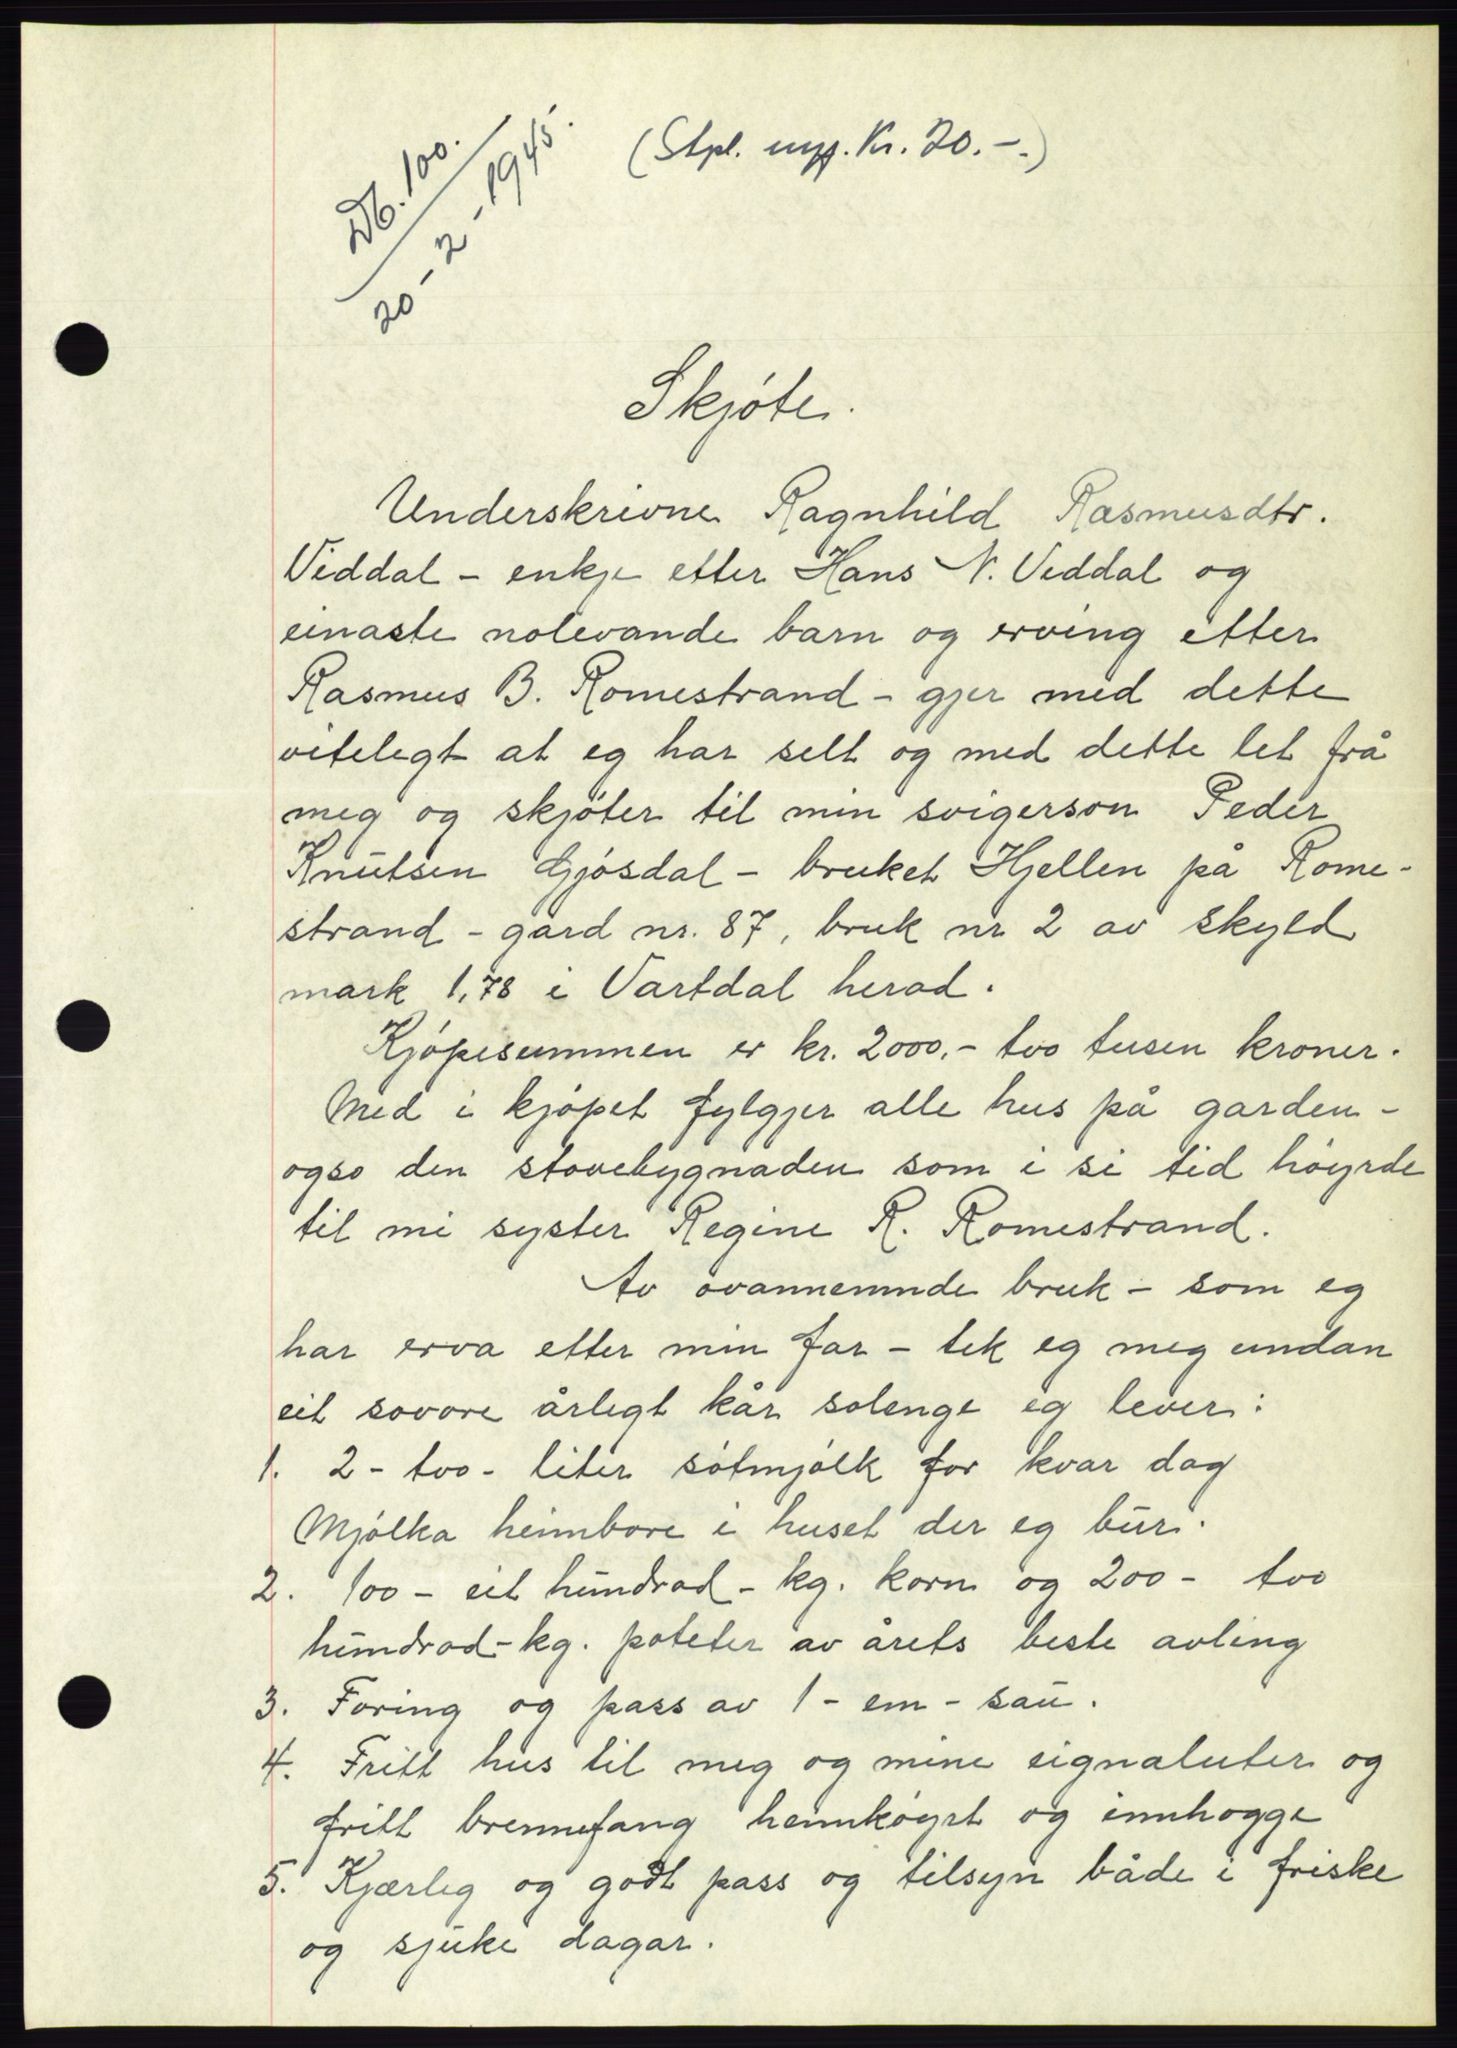 Db. 100.
20 - 2 - 1945.
(Stpl. uppg. Kr. 20.-.)
Skjóte.
Underskrivne Ragnhild Rasmusdtr.
Viddal - enkje etter Hans N. Viddal og
einaste nolevande barn og erving etter
Rasmus B. Romestrand - gjer med dette
vitelegt at eg har selt og med dette let frå
meg og skjóter til min svigerson Peder
Knutsen Gjósdal - bruket Hjellen på Rome-
strand - gard nr. 87, bruk nr 2 av skyld
mark 1,78 i Vartdal herad.
Kjópesummen er kr. 2000,- tvo tusen kroner.
Med i kjópet fylgjer alle hus på garden -
ogso den stovebygnaden som i si tid hóyrde
til mi syster Regine R. Romestrand.
Av ovannemnde bruk - som eg
har erva etter min far - tek eg meg undan
eit sovore årlegt kår solenge eg lever:
1. 2 - tvo - liter sótmjólk for kvar dag
Mjólka heimbore i huset der eg bur.
2. 100 - eit hundrad - kg. korn og 200 - tvo
hundrad - kg. poteter av årets beste avling
3. Foring og pass av 1 - ein - sau.
4. Fritt hus til meg og mine eignaluter og
fritt brennefang heimkóyrt og innhogge
5. Kjærleg og godt pass og tilsyn både i friske
og sjuke dagar.